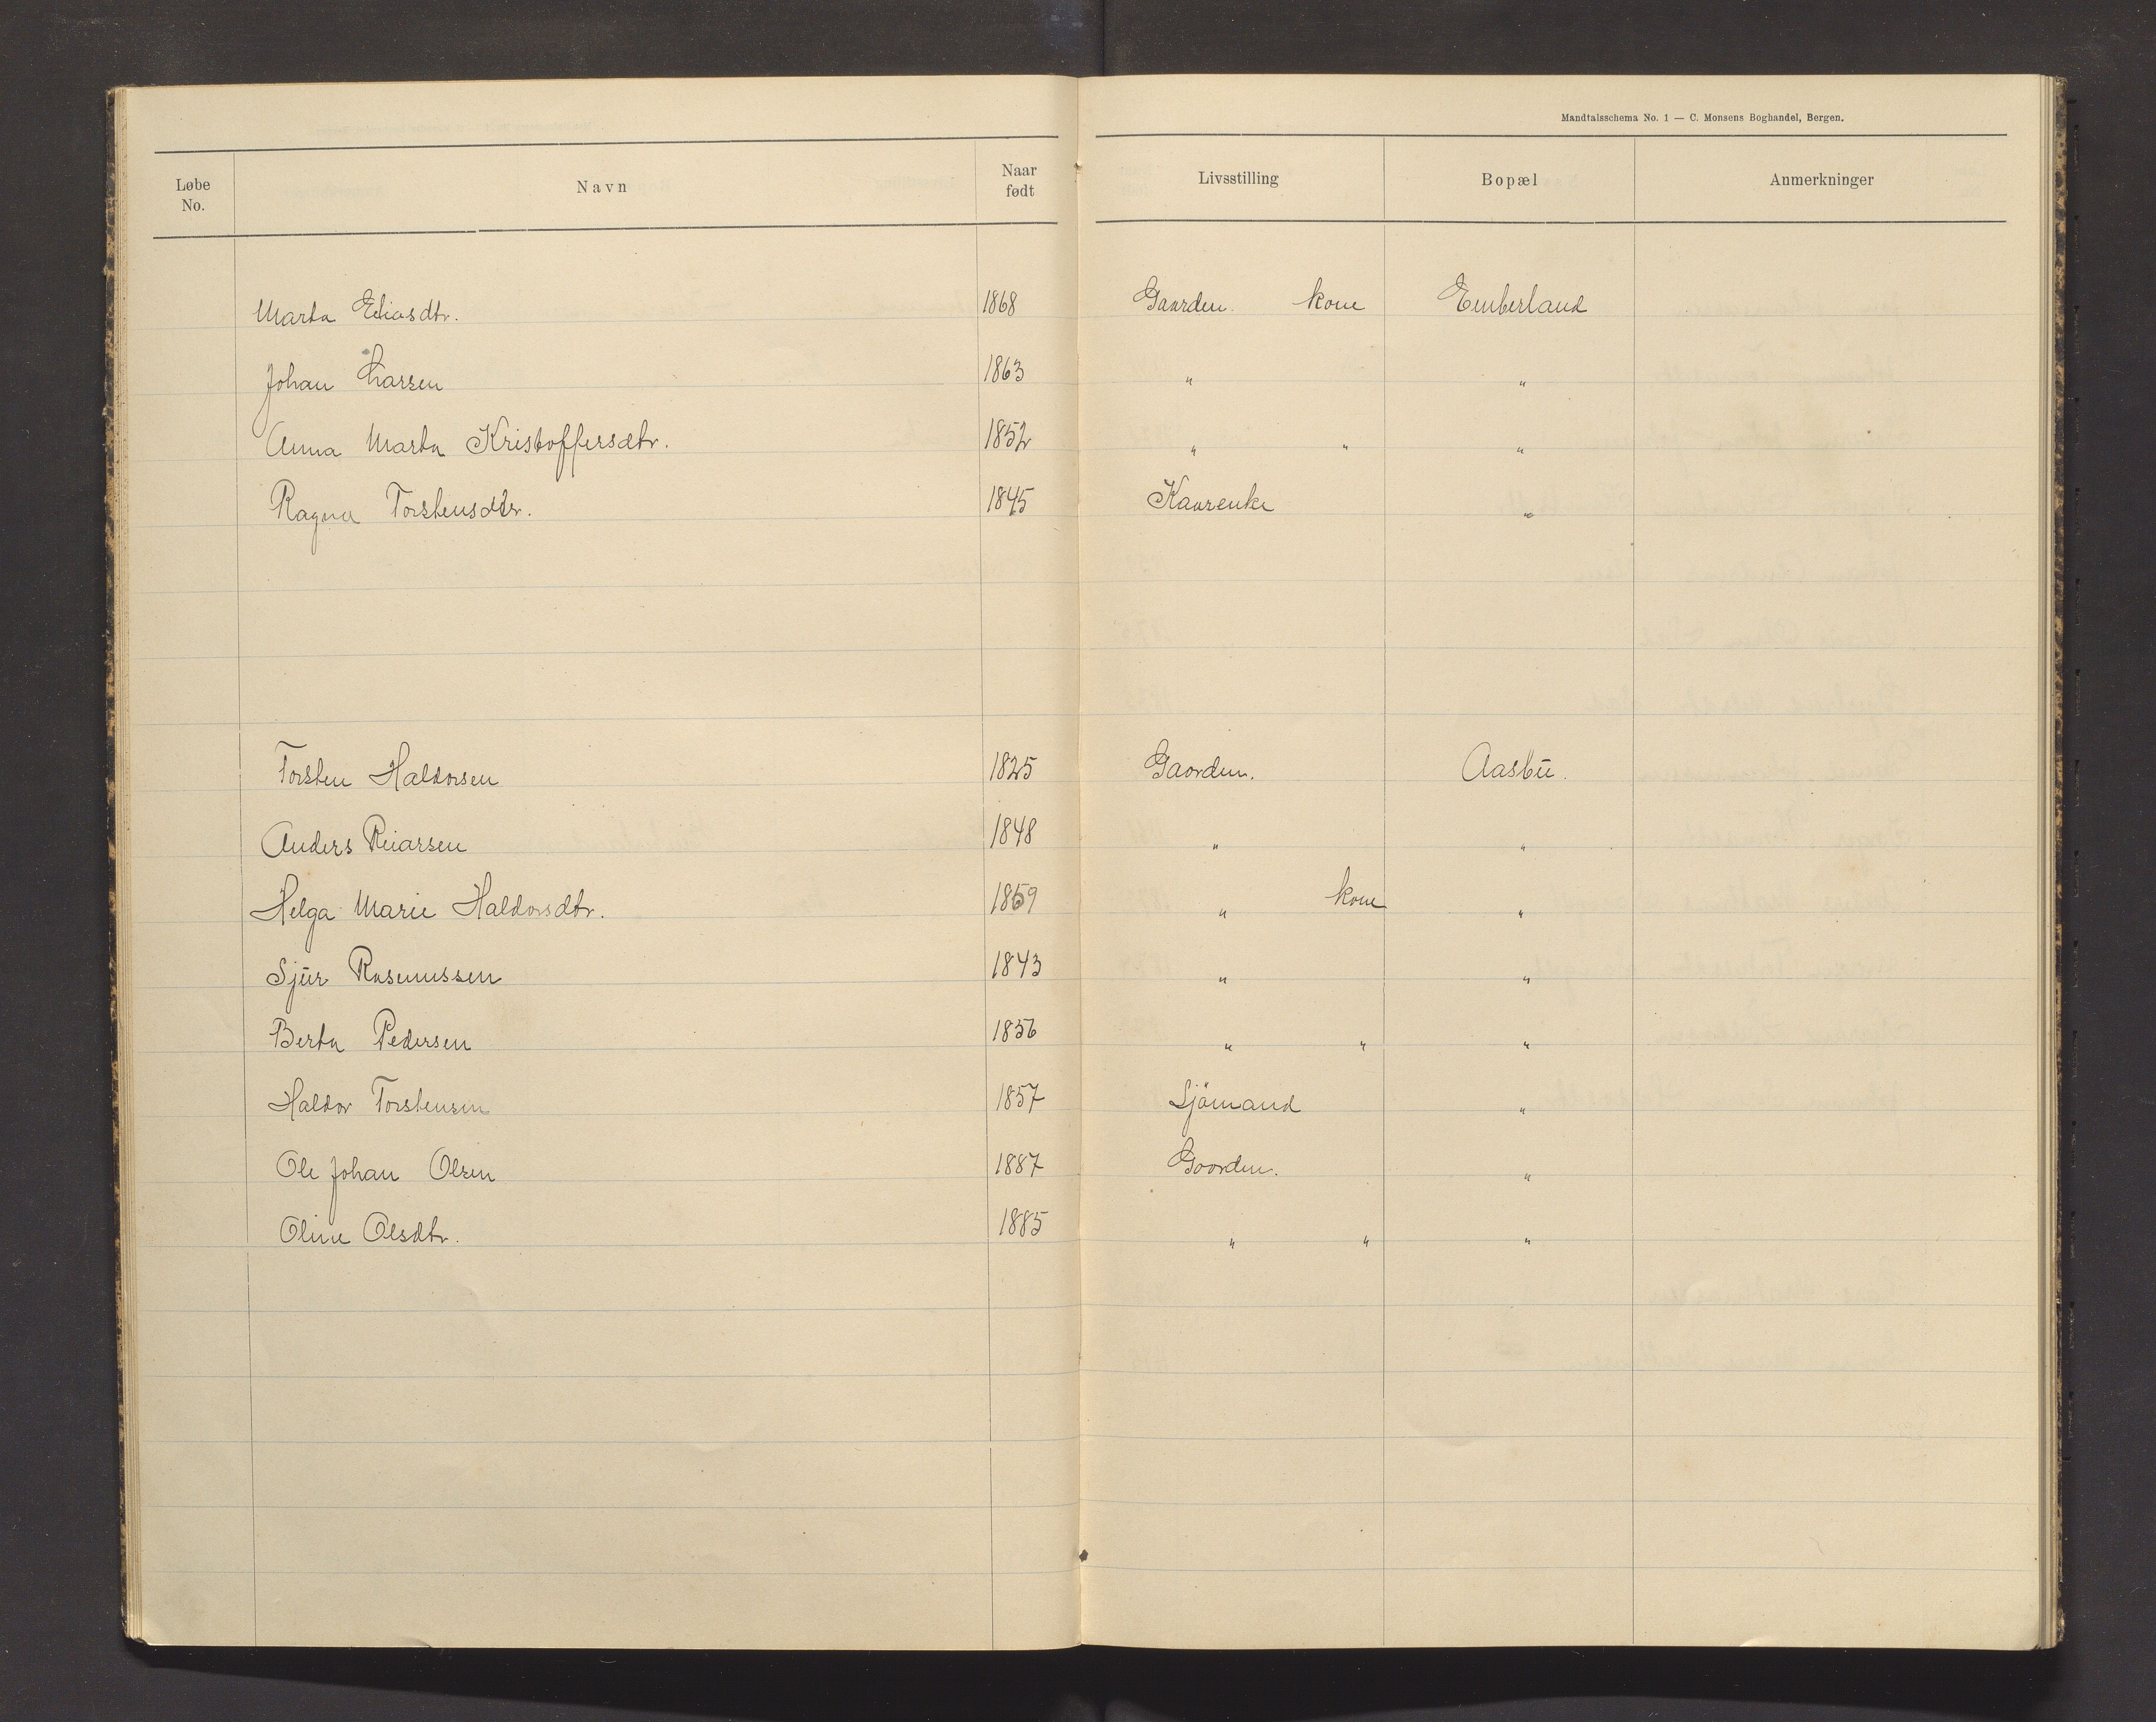 Mandtalsschema No. 1 — C. Monsens Boghandel, Bergen.
Løbe No. Navn Naar født Livsstilling Bopæl Anmerkninger
Marta Eliasdtr. 1868 Gaarden. kone Emberland
Johan Larsen 1863 " "
Anna Marta Kristoffersdtr. 1852 " " "
Ragna Torstensdtr. 1845 Kaarenke "
Torsten Haldorsen 1825 Gaarden. Aasbü.
Anders Reiarsen 1848 " "
Helga Marie Haldorsdtr. 1859 " kone "
Sjür Rasmussen 1843 " "
Berta Pedersen 1856 " " "
Haldor Torstensen 1857 Sjömand "
Ole Johan Olsen 1887 Gaarden. "
Oline Olsdtr. 1885 " " "